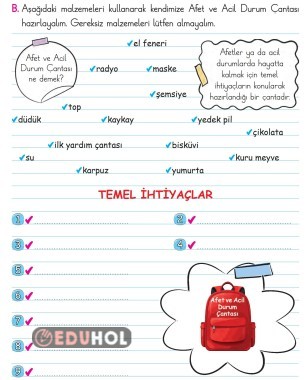 B. Aşağıdaki malzemeleri kullanarak kendimize Afet ve Acil Durum Çantası
hazırlayalım. Gereksiz malzemeleri lütfen almayalım.
Afet ve Acil
Durum Çantası
ne demek?
✓el feneri
✓radyo ✓maske
✓şemsiye
Afetler ya da acil
durumlarda hayatta
kalmak için temel
ihtiyaçların konularak
hazırlandığı bir çantadır.
✓top
✓düdük ✓kaykay ✓yedek pil
✓çikolata
✓ilk yardım çantası ✓bisküvi
✓su ✓kuru meyve
✓karpuz ✓yumurta
TEMEL İHTİYAÇLAR
1✓ 2✓
3✓ 4✓
5✓
6✓
7✓
8✓
9✓
Afet ve Acil
Durum
Çantası
EDUHOL